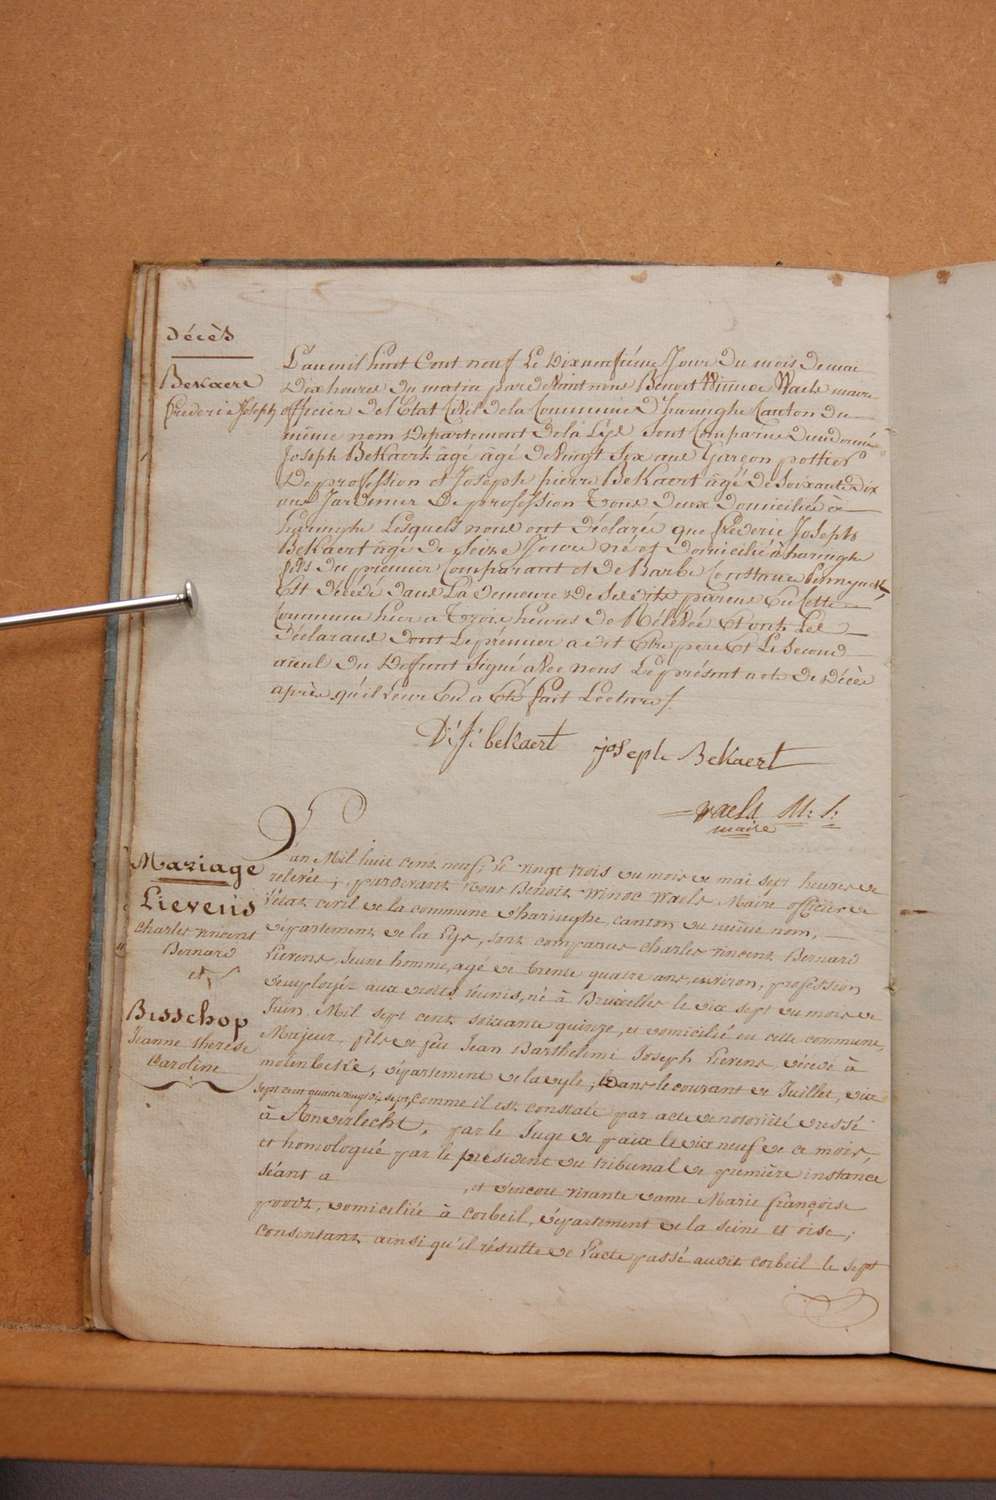 Décès
Bekaert
frederic Joseph
L'an mil huit Cent neuf Le Dixneufième Jour du mois de mai
Dix heures du matin par devant nous Benoit Winnoc Waels maire
officier de l'Etat Civil de la Commune d'haringhe Canton du
même nom Departement de la Lÿs sont Comparus
Joseph Bekaert âgé âgé de Vingt Six ans Garçon pottier
De profession et Joseph pierre Bekaert âgé de Soixante Dix
ans Jardinier De profession Tous deux domiciliés à
haringhe Lesquels nous ont déclaré que frederic Joseph
Bekaert âgé de Seize Jours né et domicilié à haringhe
fils du premier Comparant et de Barbe Constance
Est décédé dans La demeure De Ses dits parens En Cette
Commune hier a Trois heures de Rélévée Et ont Les
Déclarans dont Le premier a dit Etre pere Et Le Second
aïeul du Deffunt Signé avec nous Le présent acte de Décès
après qu'il Leur En a Eté fait Lecture /.
D: J: bekaert
joseph Bekaert
waels M: S:
maire
Mariage
Lievens
Charles vincent
Bernard
et
Bisschop
Jeanne therese
Caroline
L'an Mil huit cent neuf, le vingt trois du mois de mai sept heures de
relevée, pardevant Nous Benoit winoc waels Maire officier de
l'état civil de la commune d'haringhe, canton du même nom,
département de la Lys, sont comparus charles vincent Bernard
Lievens, Jeune homme, agé de trente quatre ans environ, profession
d'employé aux droits réunis, né à Bruxelles le dix sept du mois de
Juin, Mil sept cent soixante quinze, et domicilié en cette commune,
Majeur, fils de feu Jean Barthelemi Joseph Lievens, décédé à
molenbeke, département de la dyle, Dans le courant de Juillet, dix
sept cent quatre vingt dix sept, comme il est constaté par acte de notoriété dressé
à Anderlecht, par le Juge de paix le dix neuf de ce mois,
et homologué par le président du tribunal de première instance
séant a , et d'encore vivante dame Marie françoise
, domiciliée à Corbeil, département de la seine et oise,
consentant ainsi qu'il résulte de l'acte passé audit corbeil le sept